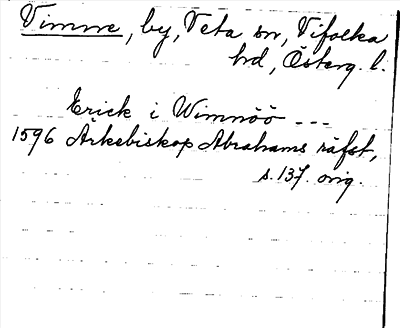 Vimme, by, Veta sn, Vifolka
hd, Österg. l.
Erick i Wimnöö ---
1596 Ärkebiskop Abrahams räfst,
s. 137. orig.